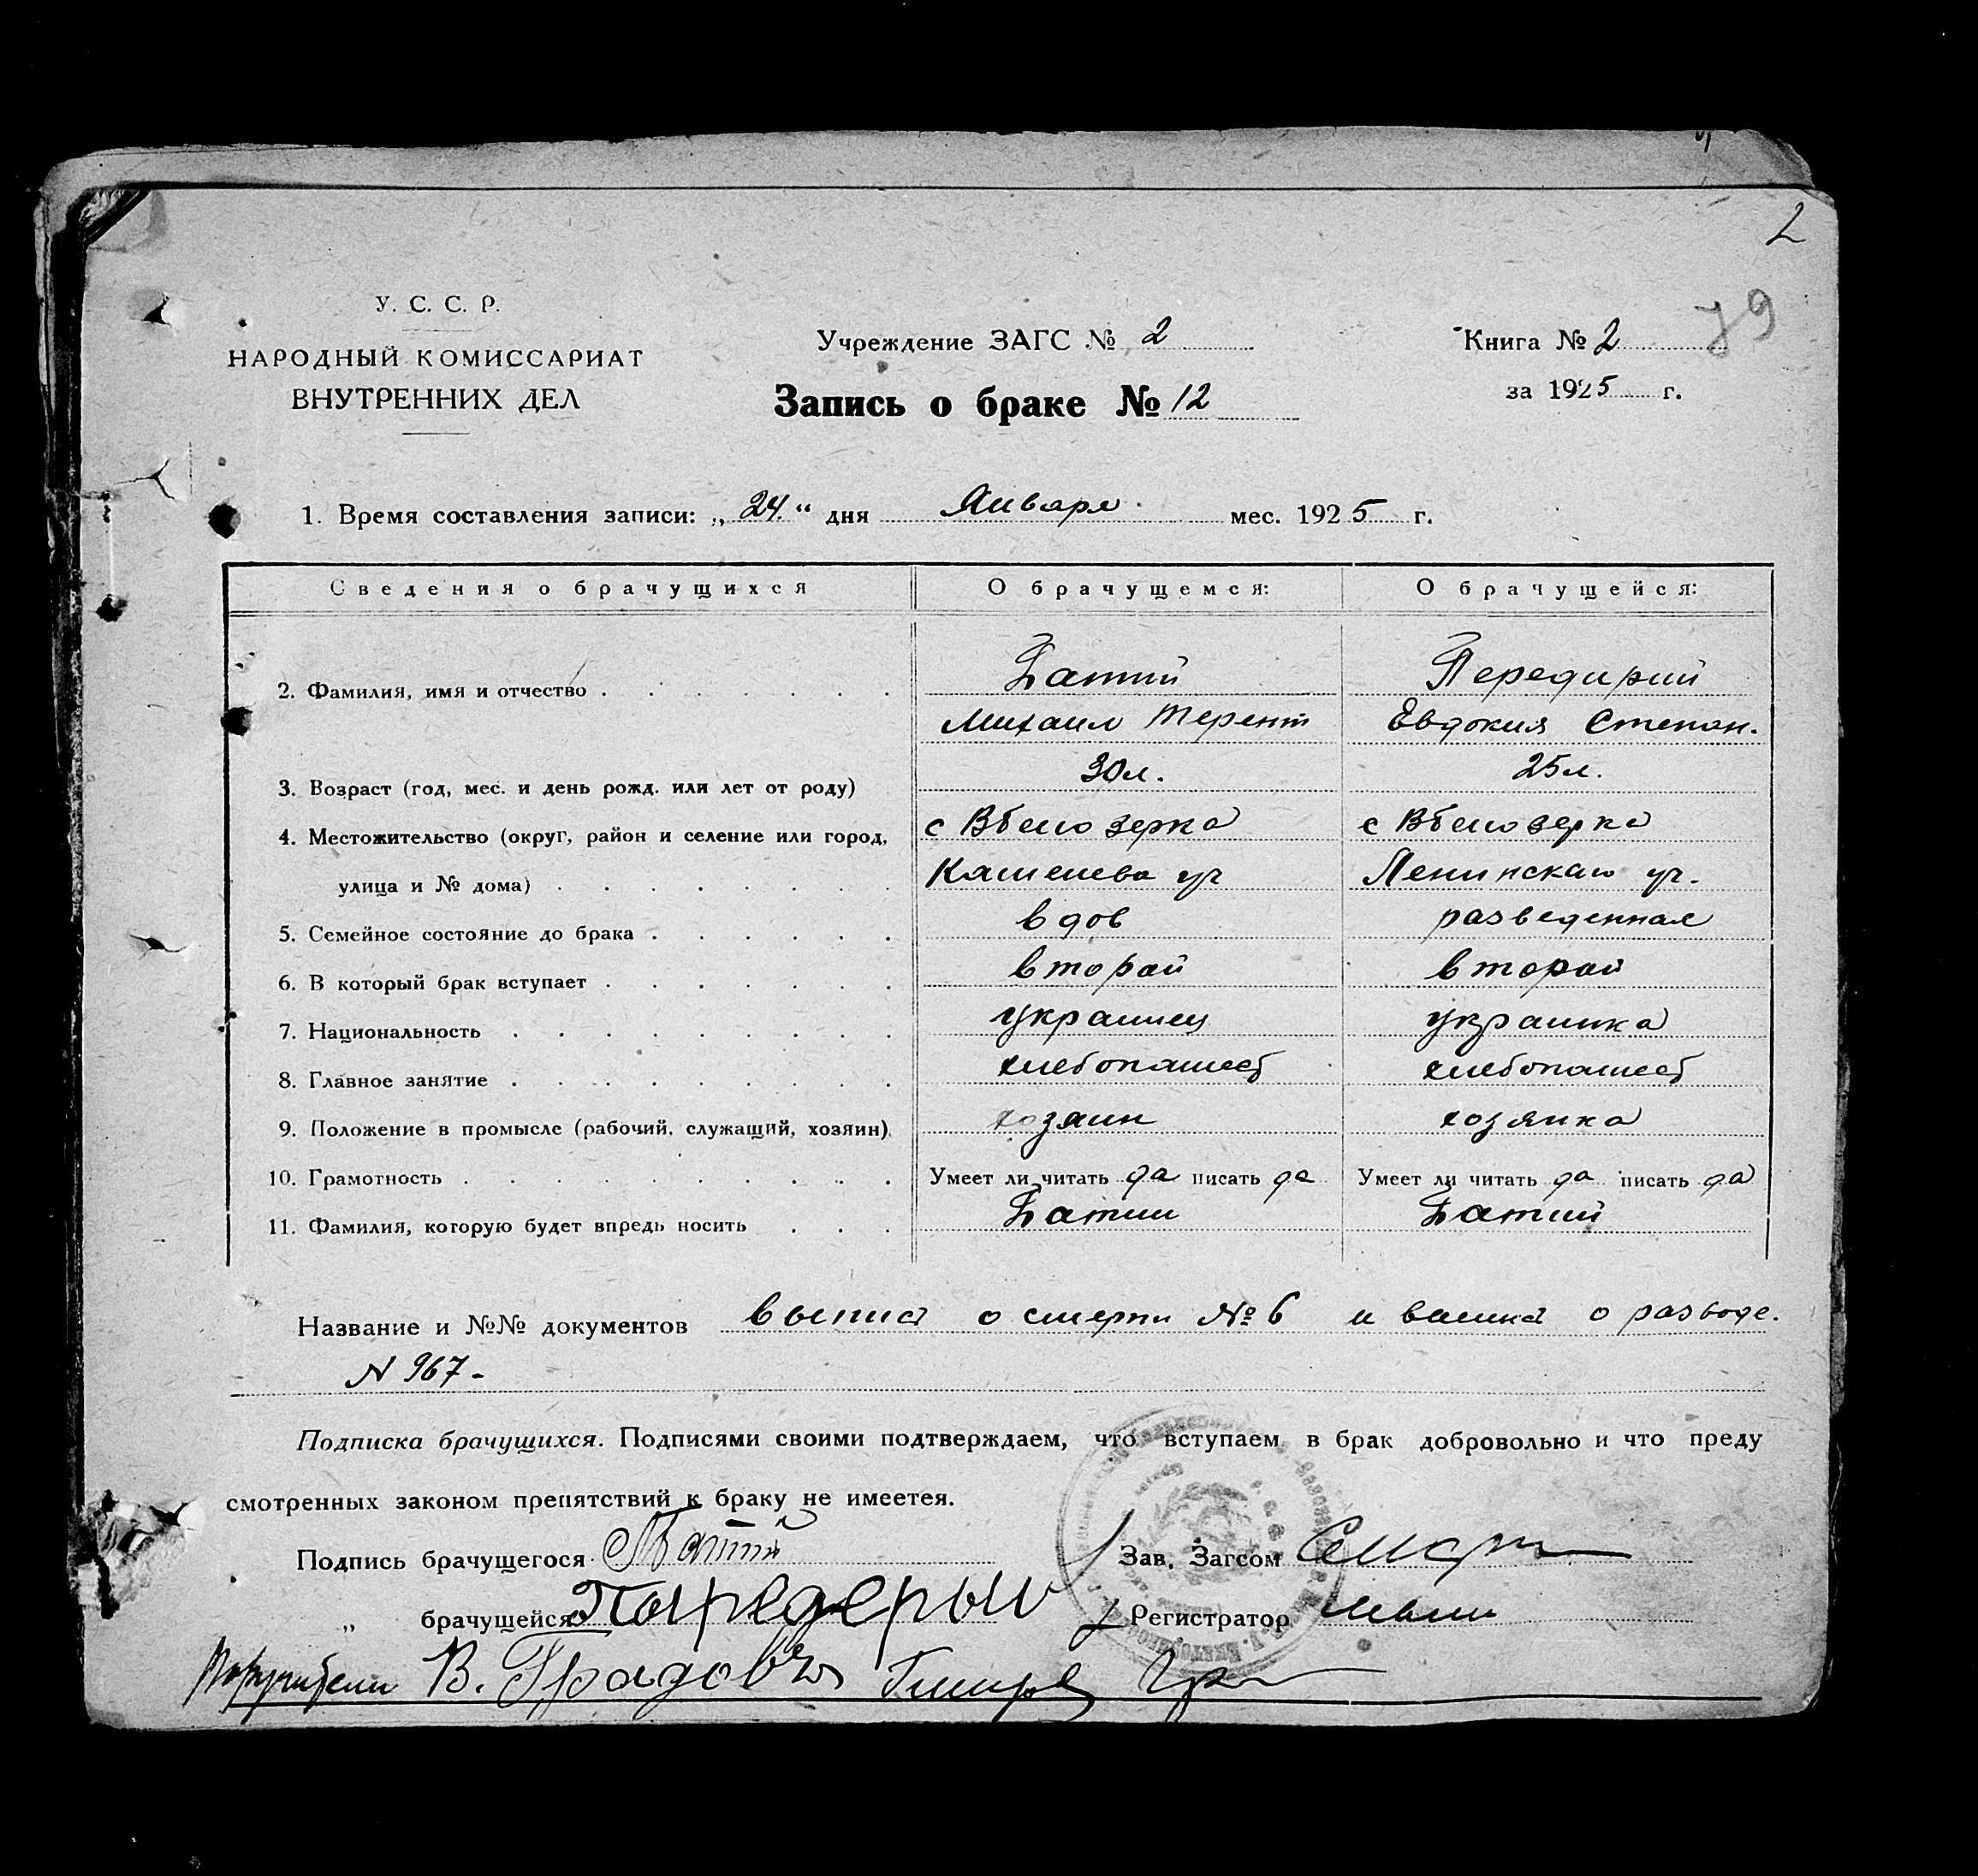 2
79
У. С. С. Р.
НАРОДНЫЙ КОМИССАРИАТ
ВНУТРЕННИХ ДЕЛ
Учреждение ЗАГС № 2
Запись о браке № 12
Книга № 2
за 1925 г.
1. Время составления записи: „24.“ дня Января мес. 1925 г.
Сведения о брачущихся О брачущемся: О брачущейся:
2. Фамилия, имя и отчество Батий Передирий
Михаил Терент Евдокия Степан.
3. Возраст (год, мес. и день рожд. или лет от роду) 30 л. 25 л.
4. Местожительство (округ, район и селение или город, с Вбелозерка с Вбелозерка
улица и № дома) уч Ленинская уч.
5. Семейное состояние до брака вдов разведенная
6. В который брак вступает второй второй
7. Национальность украинец украинка
8. Главное занятие хлебопашест хлебопашест
9. Положение в промысле (рабочий, служащий, хозяин) хозяин хозяйка
10. Грамотность Умеет ли читать да писать да Умеет ли читать да писать да
11. Фамилия, которую будет впредь носить Батий Батий
Название и №№ документов о смерти № 6 и о разводе.
N 967 -
Подписка брачущихся. Подписями своими подтверждаем, что вступаем в брак добровольно и что преду
смотренных законом препятствий к браку не имеетея.
Подпись брачущегося Батий Зав. Загсом
„ брачущейся Регистратор
В.